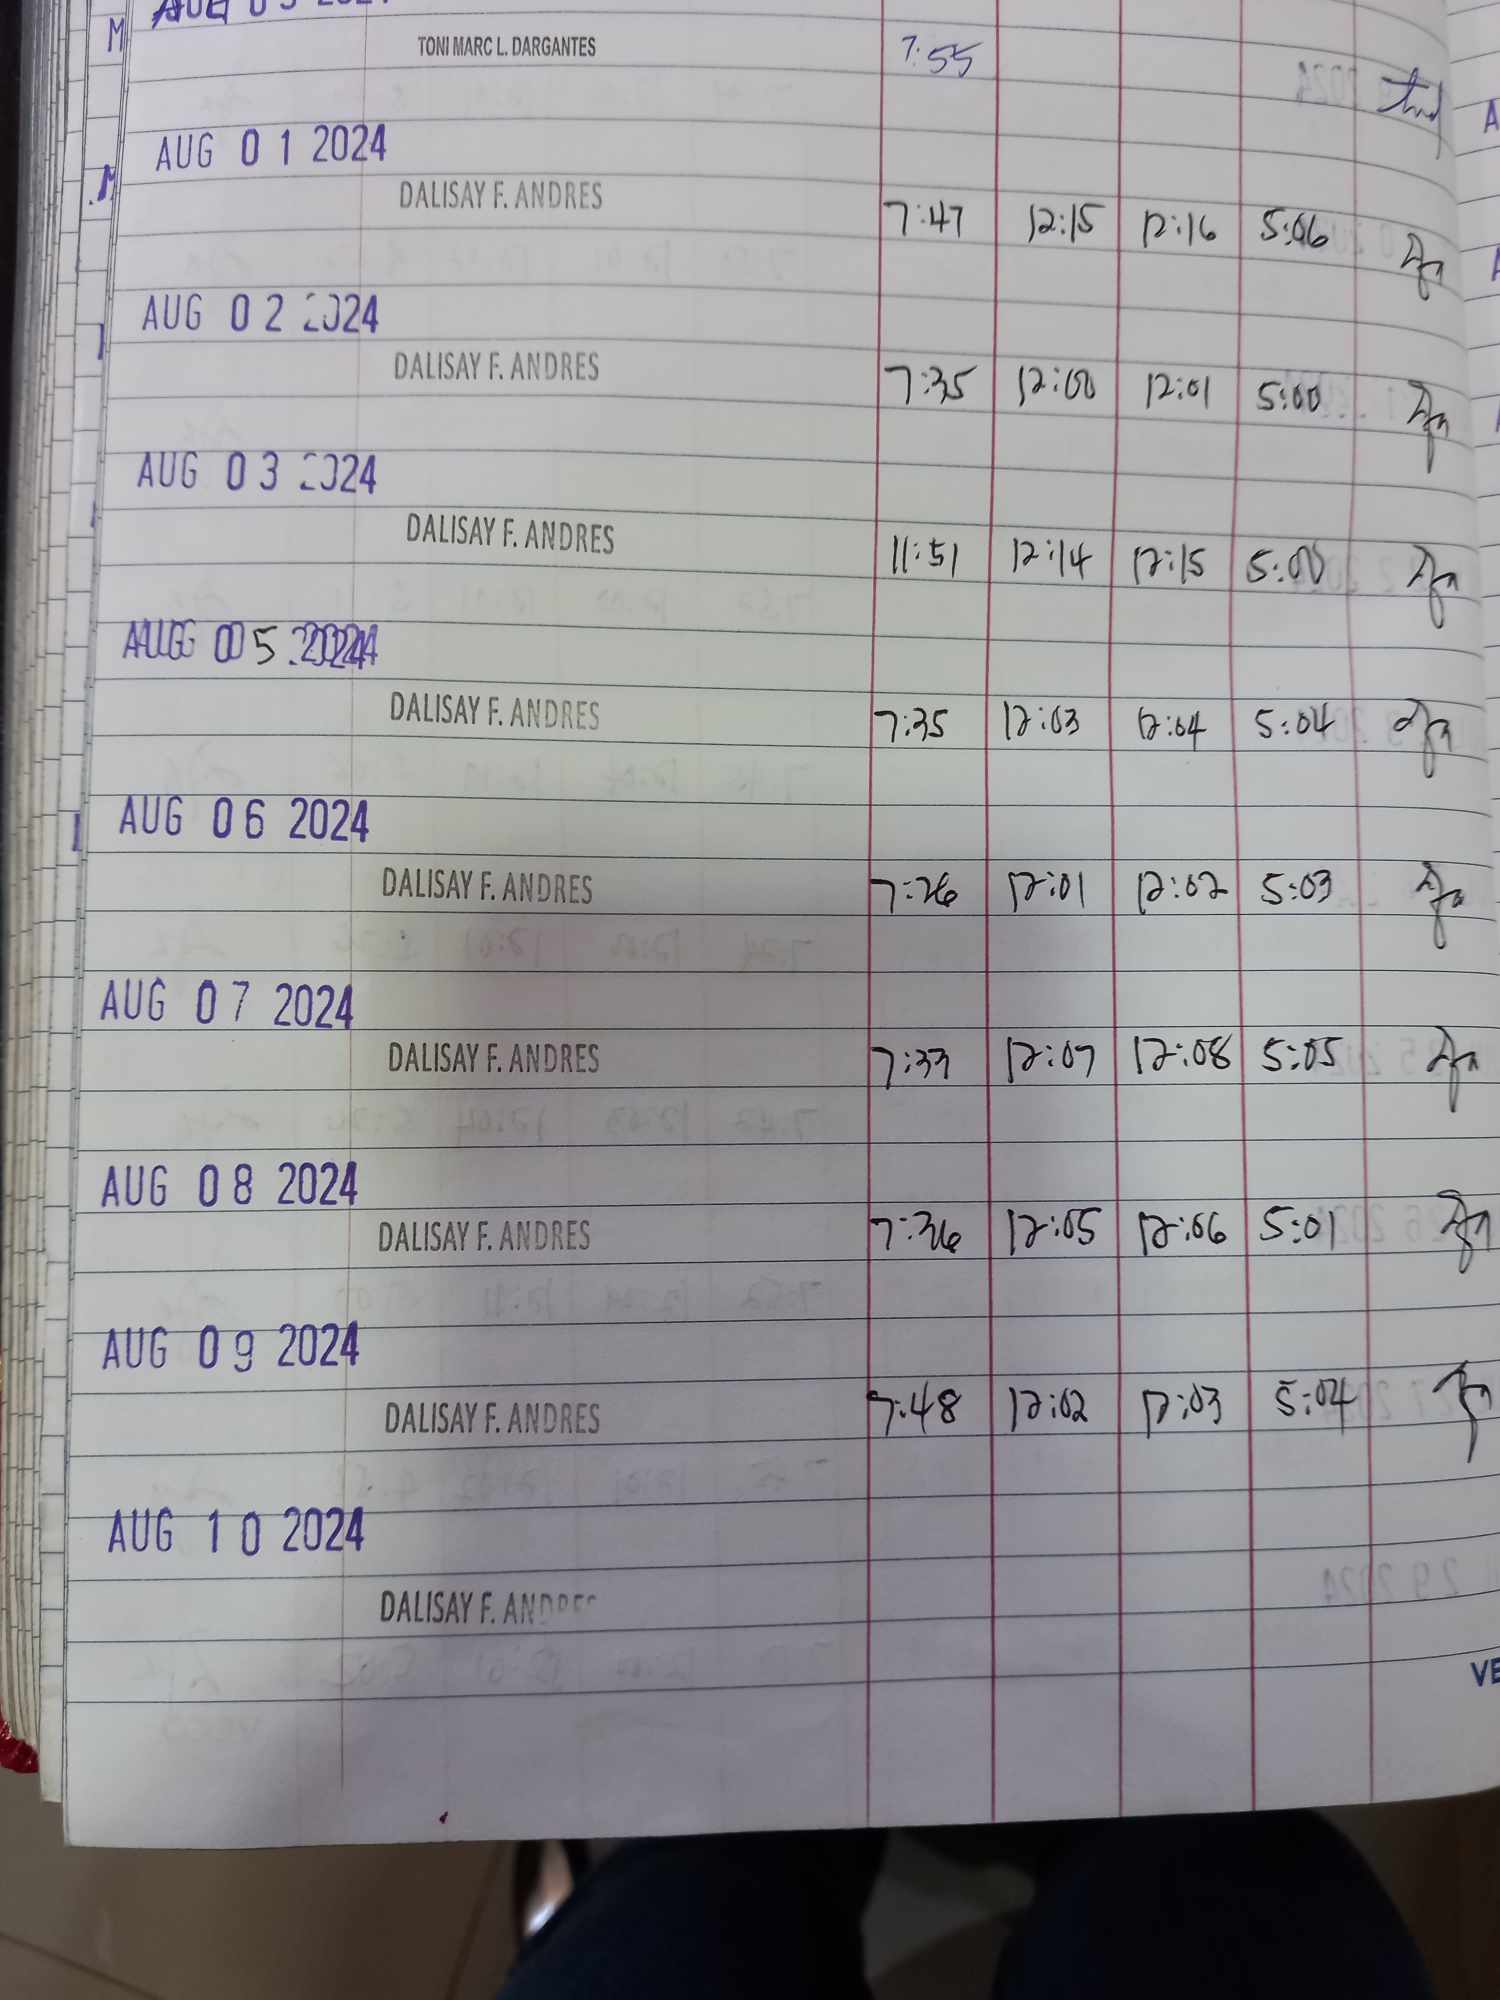 TONI MARC L. DARGANTES 7:55
AUG 01 2024
DALISAY F. ANDRES 7:47 12:15 12:16 5:06
AUG 02 2024
DALISAY F. ANDRES 7:35 12:00 12:01 5:00
AUG 03 2024
DALISAY F. ANDRES 11:51 12:14 12:15 5:00
AUG 05 2024
DALISAY F. ANDRES 7:35 12:03 12:04 5:04
AUG 06 2024
DALISAY F. ANDRES 7:26 12:01 12:02 5:03
AUG 07 2024
DALISAY F. ANDRES 7:33 12:07 12:08 5:05
AUG 08 2024
DALISAY F. ANDRES 7:36 12:05 12:06 5:01
AUG 09 2024
DALISAY F. ANDRES 7:48 12:02 12:03 5:04
AUG 10 2024
DALISAY F. ANDRES
VE